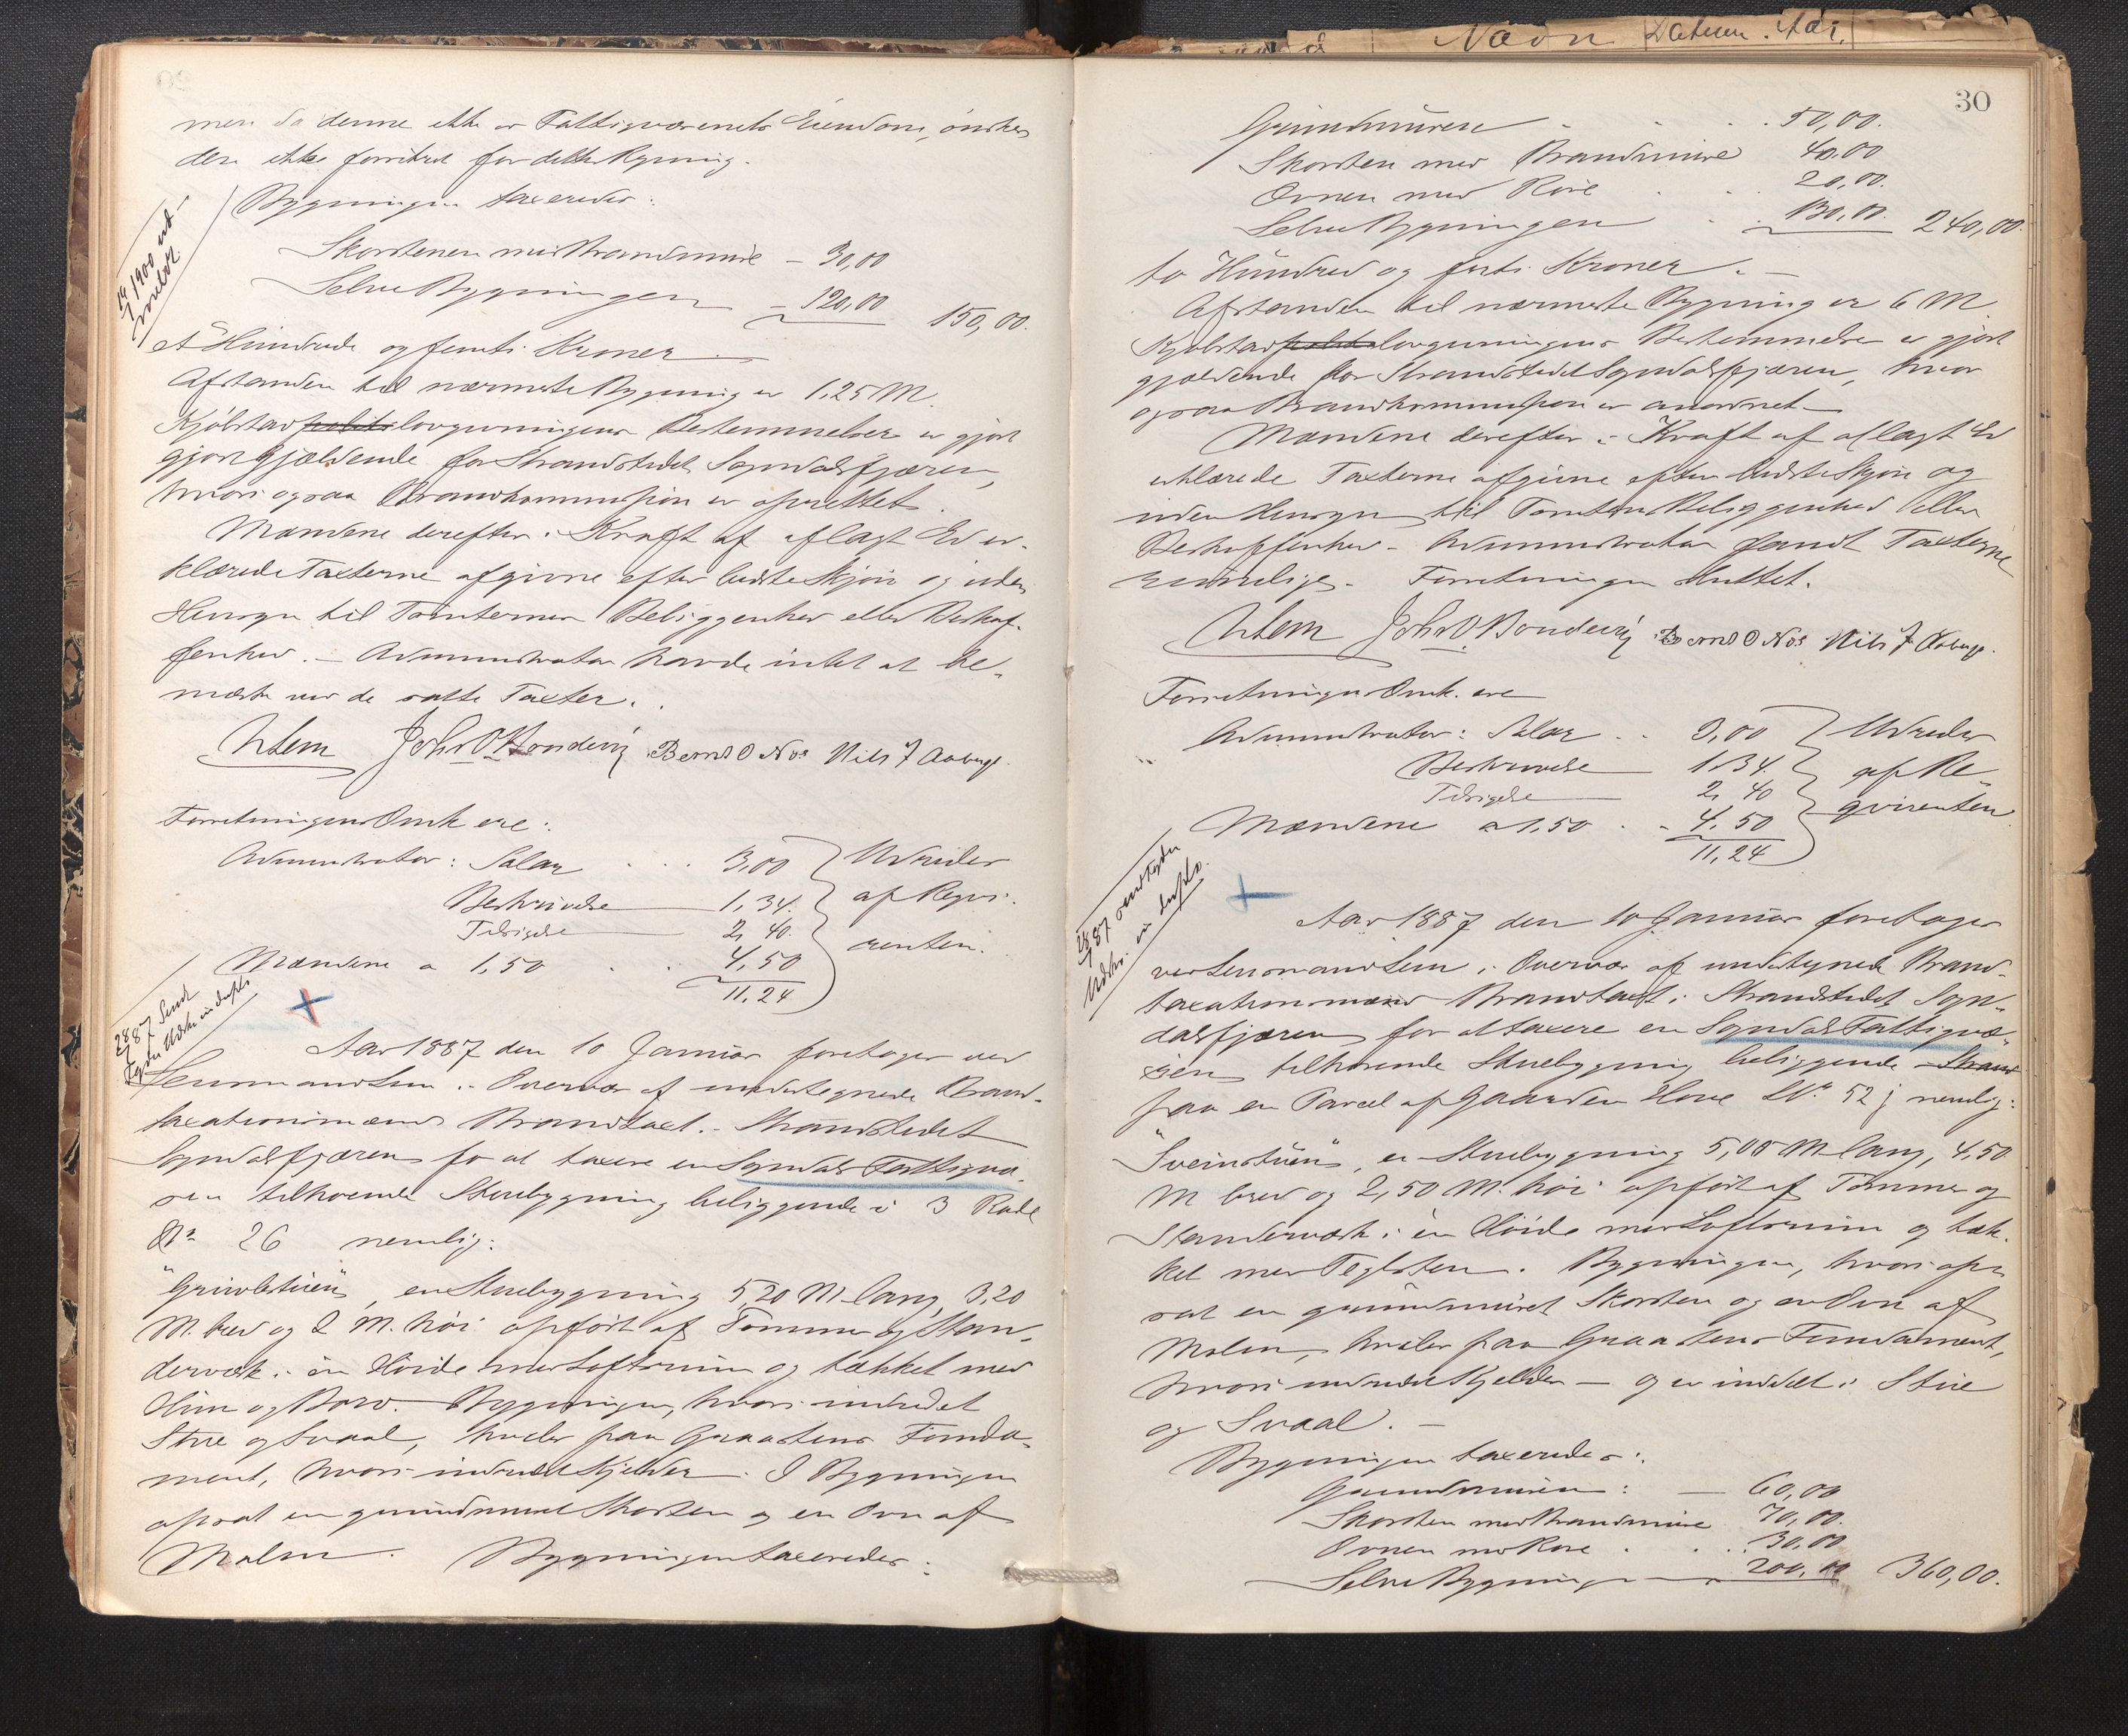 men da denne ikke er Fattigvæsenets Eiendom, ønskes
den ikke forsikret for dettes Regning.
Bygningen taxeredes:
14/7 1900 ud-
Skorstenen med Brandmure – 30,00
Selve Bygningen – 120,00 150,00.
et Hundrede og femti Kroner.
Afstanden til nærmeste Bygning er 1,25 M.
Kjøbstad lovgivningens Bestemmelser er gjort
gjældende for Strandstedet Sogndalsfjæren,
hvori ogsaa Brandkommission er oprettet.
Mændene derefter i Kraft af aflagt Ed er-
klærede Taxterne afgivne efter bedste Skjøn og uden
Hensyn til Tomternes Beliggenhed eller Beskaf-
fenhed. – Administrator havde intet at be-
mærke ved de satte Taxter.
John O Bondevig Bernt O Nøs Nils J Aaberge.
Forretningens Omk. ere:
Administrator: Salær . . . 3,00 Udredes
Beskrivelse 1,34. af Reqvi-
Tilsigelse 2,40. renten.
Mændene a 1,50 . . 4,50
11,24
28/1 87 Sendt
+
Aar 1887 den 10 Januar foretoges ved
Lensmand Lem i Overvær af undertegnede Brand-
taxationsmænd Brandtaxt i Strandstedet
Sogndalsfjæren for at taxere en Sogndals Fattigvæ-
sen tilhørende Stuebygning beliggende i 3 Rode
No 26 nemlig:
en Stuebygning 5,20 M lang, 3,20
M. bred og 2 M. høi opført af Tømmer og Stan-
derværk i én Høide med Loftsrum og tækket med
Bygningen, hvori indredet
Stue og Svaal, hviler paa Graastens Funda-
ment, hvori indredet Kjelder. I Bygningen
opsat en grundmuret Skorsten og en Ovn af
Malm. Bygningen taxeredes:
Nævn Datum. Aar.
30
Grundmuren . . . 50,00.
Skorsten med Brandmure 40,00
Ovnen med Røre . . 20,00.
Selve Bygningen . . 130,00. 240,00.
to Hundred og forti Kroner. –
Afstanden til nærmeste Bygning er 6 M.
Kjøbstad lovgivningens Bestemmelser er gjort
gjældende for Strandstedet Sogndalsfjæren, hvor
ogsaa Brandkommission er anordnet –
Mændene derefter i Kraft af aflagt Ed
erklærede Taxterne afgivne efter bedste Skjøn og
uden Hensyn til Tomtens Beliggenhed eller
Beskaffenhed – Administrator fandt Taxterne
rimelige. Forretningen sluttet.
John O. Bondevig Bernt O Nøs Nils J Aaberge.
Forretningens Omk. ere
Administrator: Salær . . 3,00 Udredes
Beskrivelse 1,34. af Re-
Tilsigelse 2,40 qvirenten
Mændene a 1,50 . . 4,50
11,24
28/1 87
+
Aar 1887 den 10 Januar foretoges
ved Lensmand Lem i Overvær af undertegnede Brand-
taxationsmænd Brandtaxt i Strandstedet Sogn-
dalsfjæren for at taxere en Sogndals Fattigvæ-
sen tilhørende Stuebygning beliggende
paa en Parcel af Gaarden Hove 52 j nemlig:
"Sveinstuen", en Stuebygning 5,00 M lang, 4,50
M bred og 2,50 M. høi opført af Tømmer og
Standerværk i én Høide med Loftsrum og tæk-
ket med Teglsten. Bygningen, hvori op-
sat en grundmuret Skorsten og en Ovn af
Malm, hviler paa Graastens Fundament,
hvori indredet Kjelder – og er inddelt i Stue
og Svaal. –
Bygningen taxeredes:
Grundmuren: – 60,00
Skorsten med Brandmure 70,00.
Ovnen m Røre . . . 30,00
Selve Bygningen 200,00 360,00.